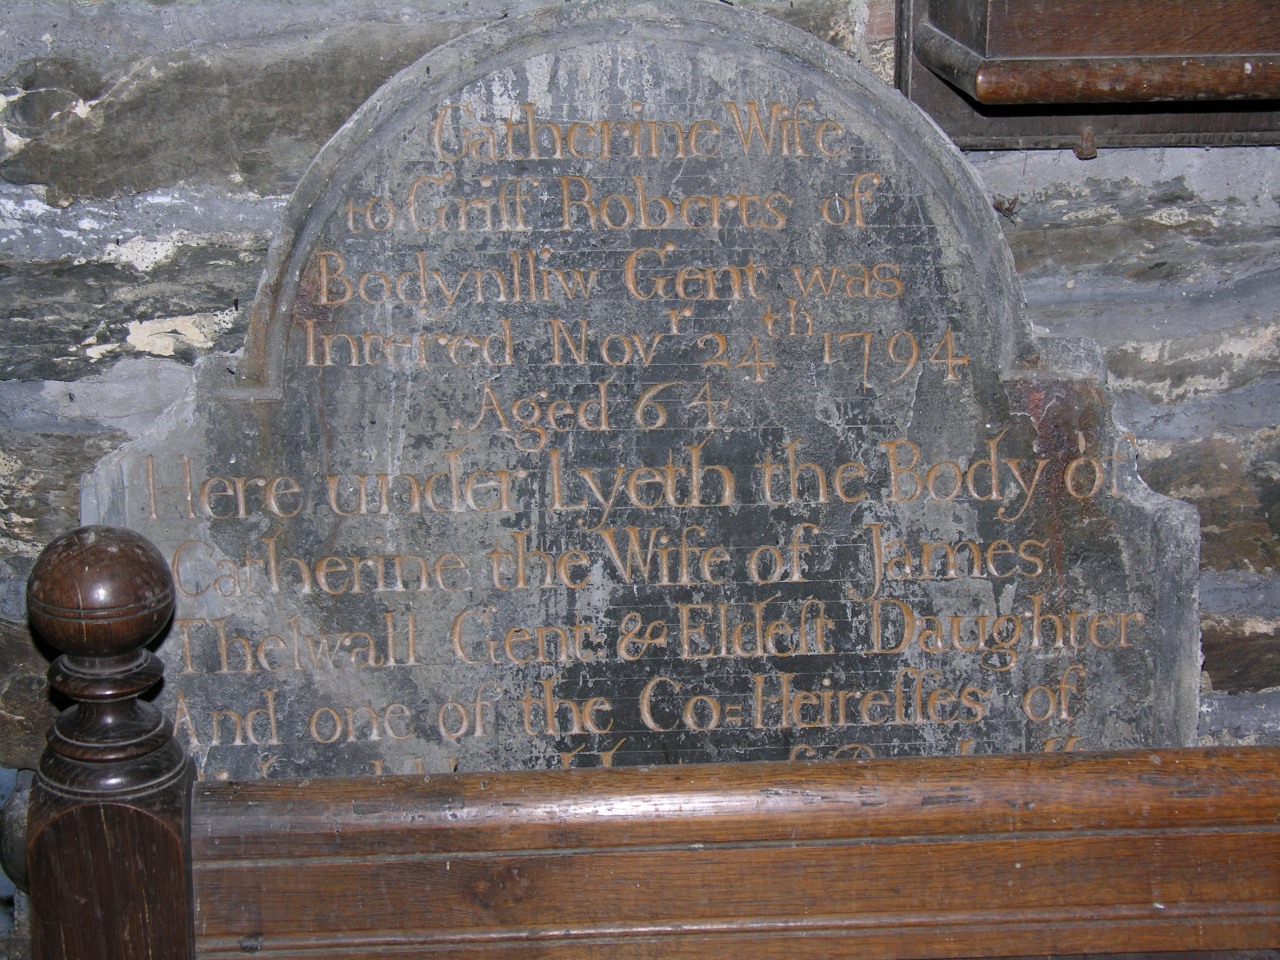 Catherine Wife
to Griff Roberts of
Bodynlliw Gent was
Intered Novʳ 24ᵗʰ 1794
Aged 64
Here under Lyeth the Body of
Catherine the Wife of James
Thelwall Gent & Eldeſt Daughter
And one of the Co=Heireſſes of